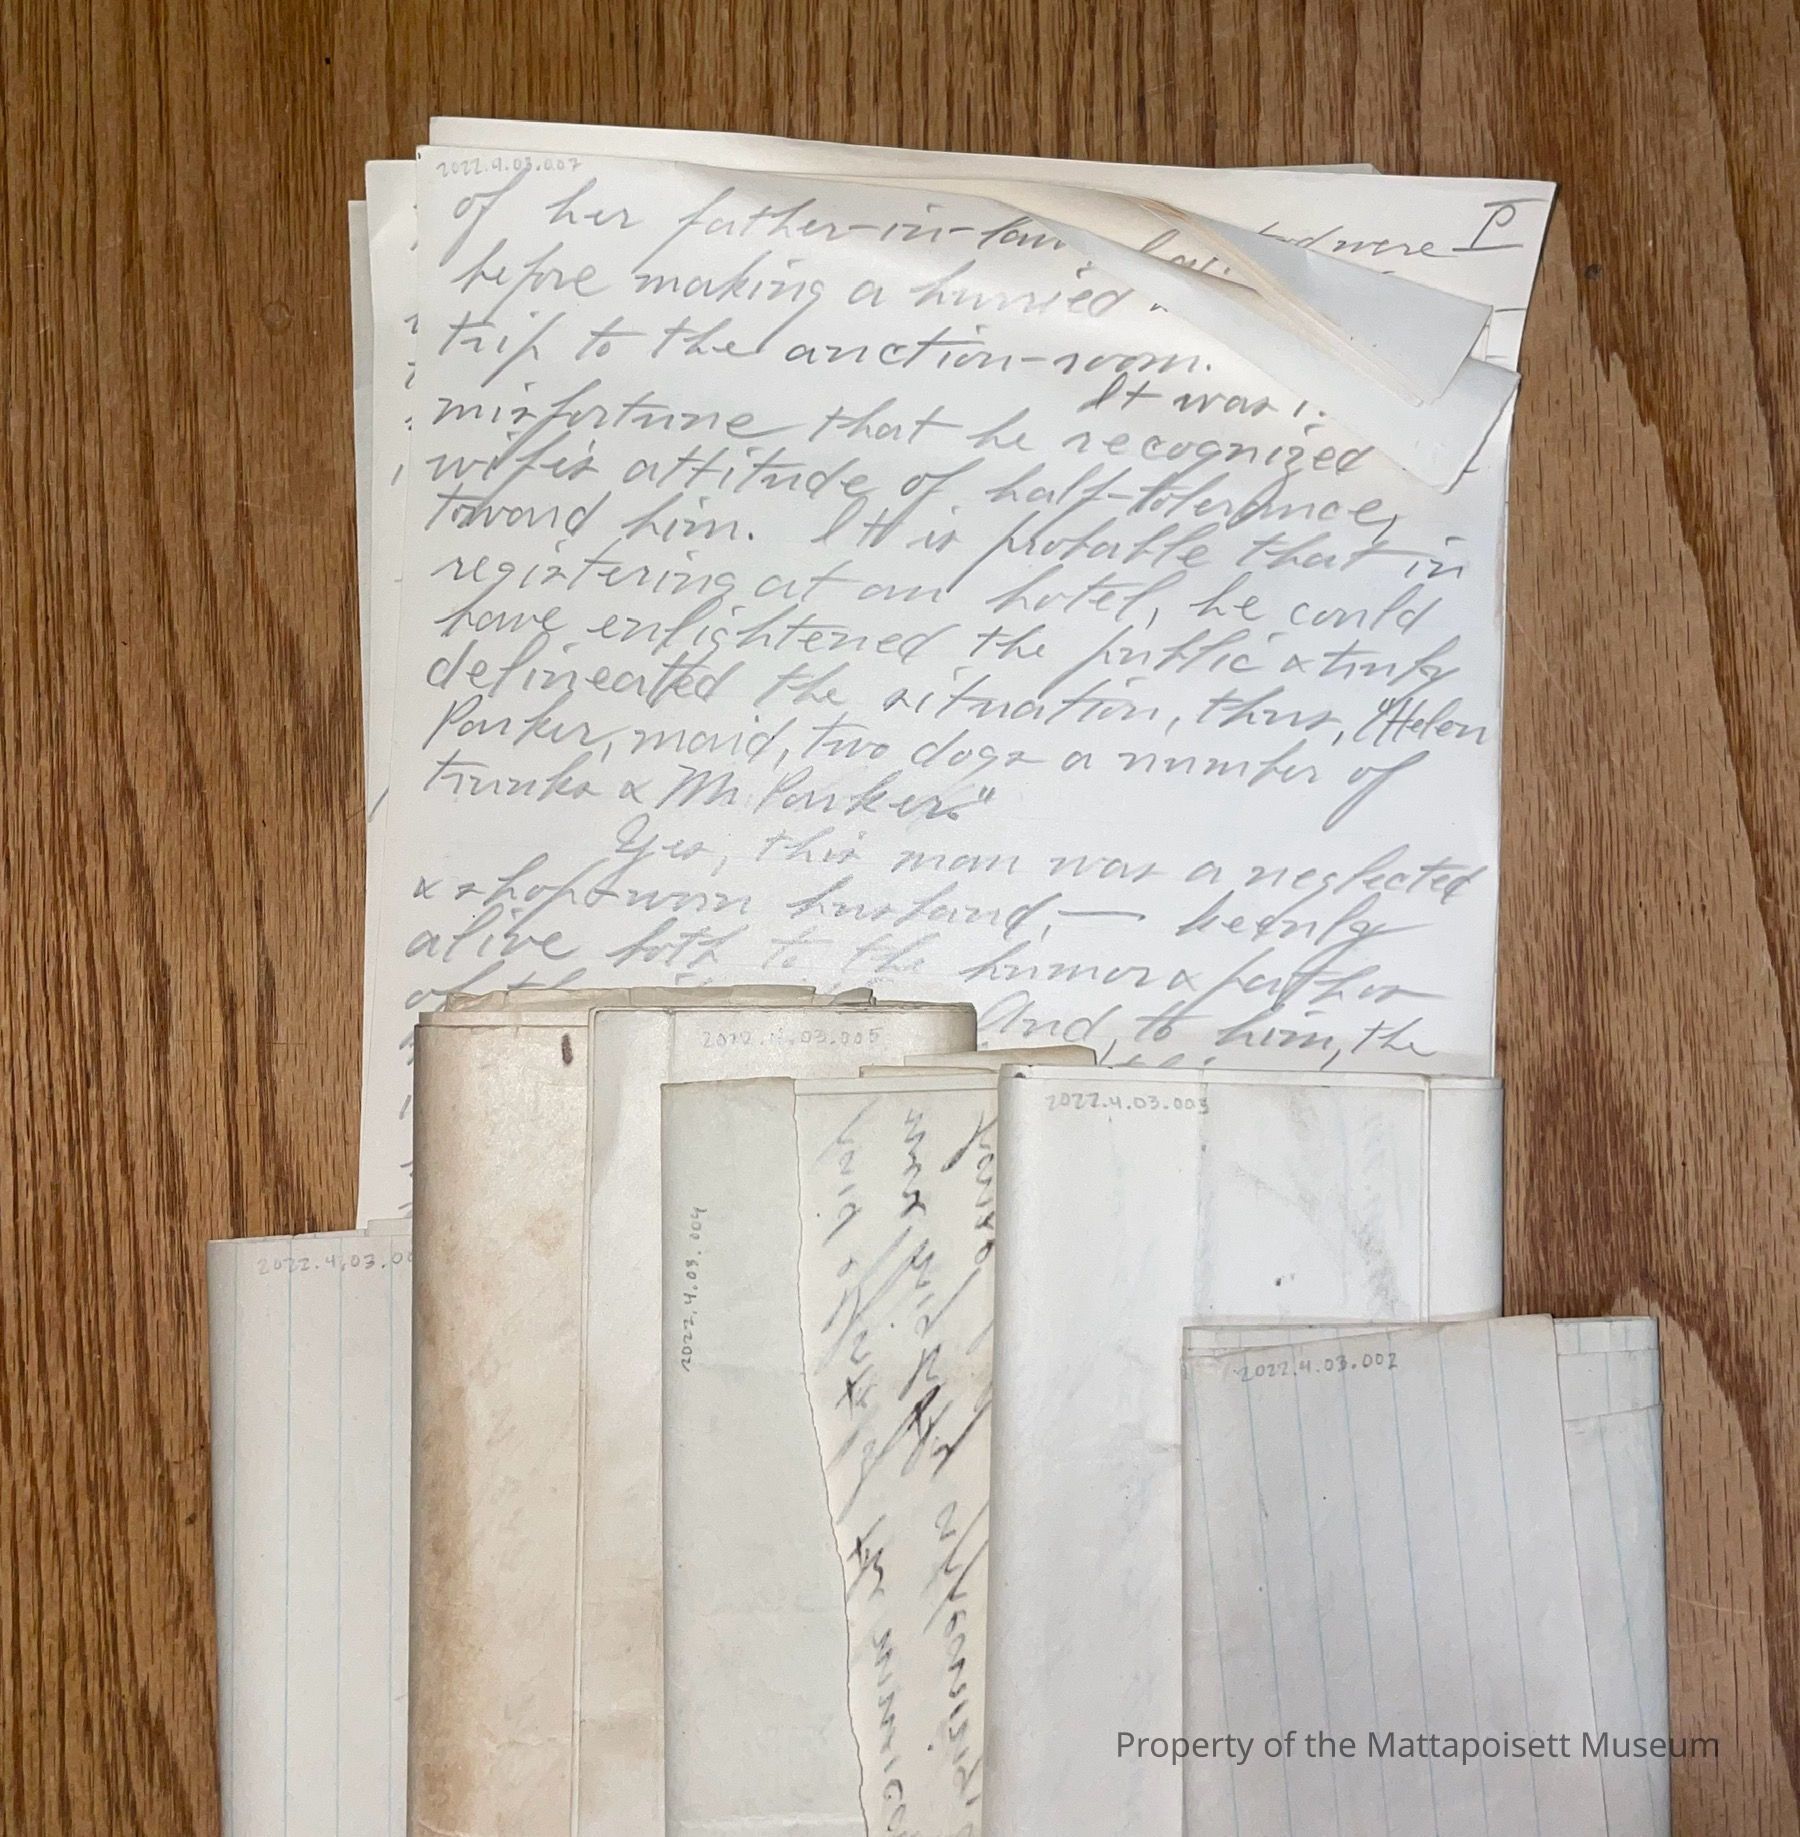 2022.4.03.007
of her father-in-law
were I
before making a hurried
trip to the auction-room.
It was
misfortune that he recognized
wife's attitude of half-tolerance,
toward him. It is probable that in
registering at an hotel, he could
have enlightened the public & truly
delineated the situation, thus, "Helen
Parker, maid, two dogs a number of
trunks & Mr. Parker."
Yes, this man was a neglected
& shop-worn husband, — keenly
alive both to the humor & pathos
of the
And, to him, the
2022.4.03.005
2022.4.03.003
2022.4.03.004
2022.4.03.00
2022.4.03.002
Property of the Mattapoisett Museum